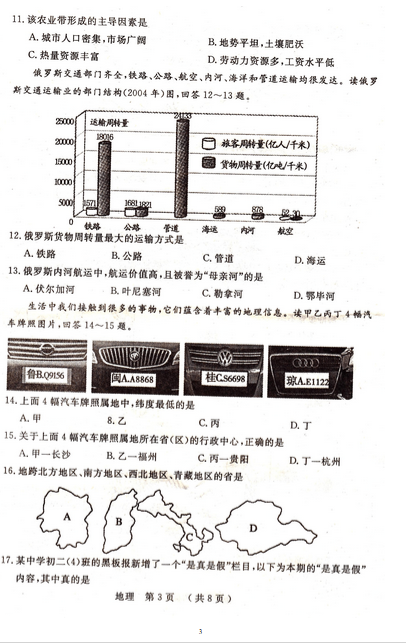 11.该农业带形成的主导因素是
A.城市人口密集,市场广阔 B.地势平坦,土壤肥沃
C.热量资源丰富 D.劳动力资源多,工资水平低
俄罗斯交通部门齐全,铁路、公路、航空、内河、海洋和管道运输均很发达。读俄罗
斯交通运输业的部门结构(2004年)图,回答12~13题。
运输周转量
25000
20000
15000
10000
5000
0
1571 18016 1681 1821 24133 589 878 52 30
旅客周转量(亿人/千米)
货物周转量(亿吨/千米)
铁路 公路 管道 海运 内河 航空
12.俄罗斯货物周转量最大的运输方式是
A.铁路 B.公路 C.管道 D.海运
13.俄罗斯内河航运中,航运价值高,且被誉为“母亲河”的是
A.伏尔加河 B.叶尼塞河 C.勒拿河 D.鄂毕河
生活中我们接触到很多的事物,它们蕴含着丰富的地理信息。读甲乙丙丁4幅汽
车牌照图片,回答14~15题。
鲁B.Q9156 闽A.A8868 桂C.S6698 琼A.E1122
14.上面4幅汽车牌照属地中,纬度最低的是
A.甲 8.乙 C.丙 D.丁
15.关于上面4幅汽车牌照属地所在省(区)的行政中心,正确的是
A.甲一长沙 B.乙一福州 C.丙一贵阳 D.丁一杭州
16.地跨北方地区、南方地区、西北地区、青藏地区的省是
A B C D
17.某中学初二(4)班的黑板报新增了一个“是真是假”栏目,以下为本期的“是真是假”
内容,其中真的是
地理 第3页 (共8页)
3